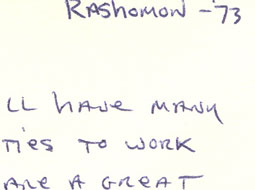 RAShOMON - '73
LL hAVE MANY
TIES TO WORK
ARE A GREAT